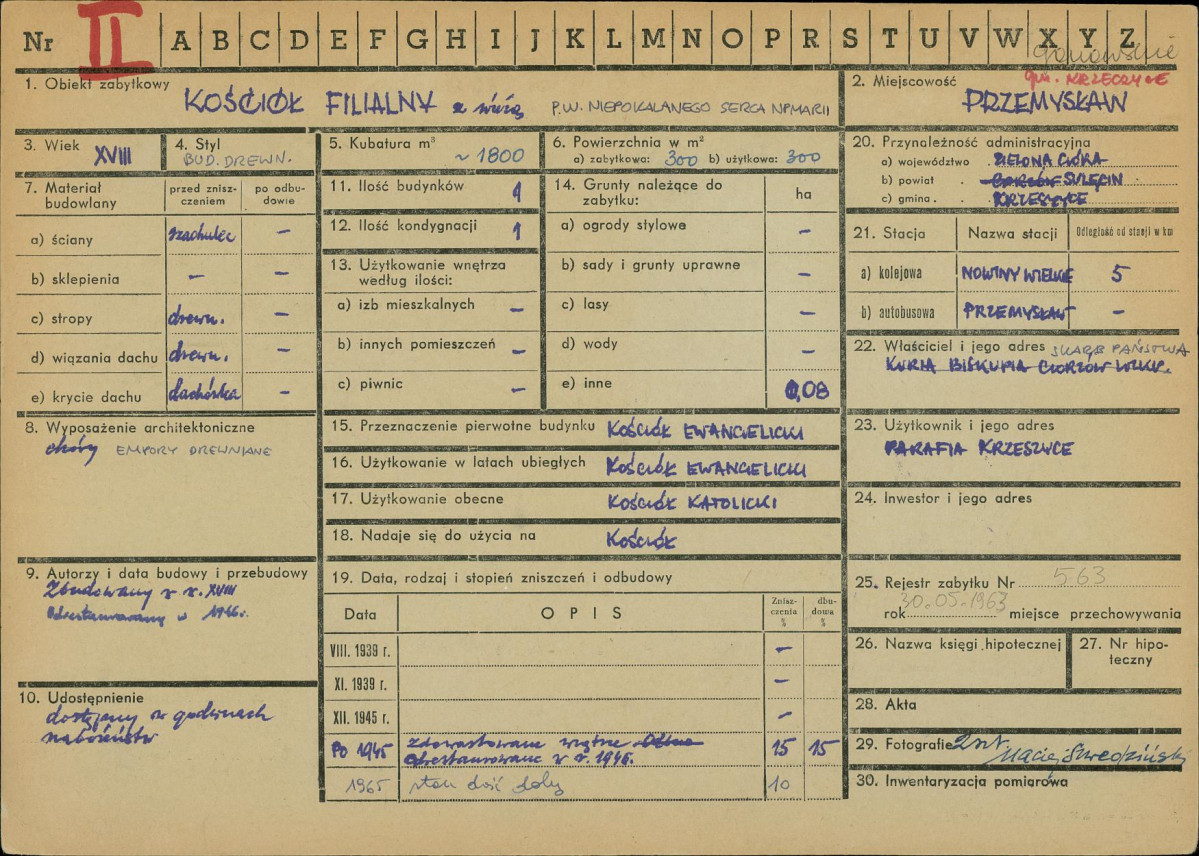 Nr II A B C D E F G H I J K L M N O P R S T U V W X Y Z
gorzowskie
gm. KRZESZYCE
1. Obiekt zabytkowy KOŚCIÓŁ FILIALNY z wieżą P.W. NIEPOKALANEGO SERCA NPMARII
2. Miejscowość PRZEMYSŁAW
3. Wiek XVIII
4. Styl BUD. DREWN.
5. Kubatura m³ ~ 1800
6. Powierzchnia w m²
a) zabytkowa: 300 b) użytkowa: 300
7. Materiał budowlany
przed znisz-
czeniem
po odbu-
dowie
a) ściany szachulec –
b) sklepienia – –
c) stropy drewn. –
d) wiązania dachu drewn. –
e) krycie dachu dachówka –
8. Wyposażenie architektoniczne
chóry EMPORY DREWNIANE
9. Autorzy i data budowy i przebudowy
Zbudowany w w. XVIII
Odrestaurowany w 1946 r.
10. Udostępnienie
dostępny w godzinach
nabożeństw
11. Ilość budynków 1
12. Ilość kondygnacji 1
13. Użytkowanie wnętrza
według ilości:
a) izb mieszkalnych –
b) innych pomieszczeń –
c) piwnic –
14. Grunty należące do
zabytku:
ha
a) ogrody stylowe –
b) sady i grunty uprawne –
c) lasy –
d) wody –
e) inne 0,08
15. Przeznaczenie pierwotne budynku KOŚCIÓŁ EWANGELICKI
16. Użytkowanie w latach ubiegłych KOŚCIÓŁ EWANGELICKI
17. Użytkowanie obecne KOŚCIÓŁ KATOLICKI
18. Nadaje się do użycia na KOŚCIÓŁ
19. Data, rodzaj i stopień zniszczeń i odbudowy
Data OPIS
Znisz-
czenia
%
dbu-
dowa
%
VIII. 1939 r. –
XI. 1939 r. –
XII. 1945 r. –
Po 1945 zdewastowane wnętrze
Odrestaurowane w r. 1946. 15 15
1965 stan dość dobry 10
20. Przynależność administracyjna
a) województwo ZIELONA GÓRA
b) powiat GORZÓW SULĘCIN
c) gmina KRZESZYCE
21. Stacja Nazwa stacji Odległość od stacji w km
a) kolejowa NOWINY WIELKIE 5
b) autobusowa PRZEMYSŁAW –
22. Właściciel i jego adres SKARB PAŃSTWA
KURIA BISKUPIA GORZÓW WLKP.
23. Użytkownik i jego adres
PARAFIA KRZESZYCE
24. Inwestor i jego adres
25. Rejestr zabytku Nr 563
rok 30.05.1963 miejsce przechowywania
26. Nazwa księgi hipotecznej
27. Nr hipo-
teczny
28. Akta
29. Fotografie 2 szt.
30. Inwentaryzacja pomiarowa